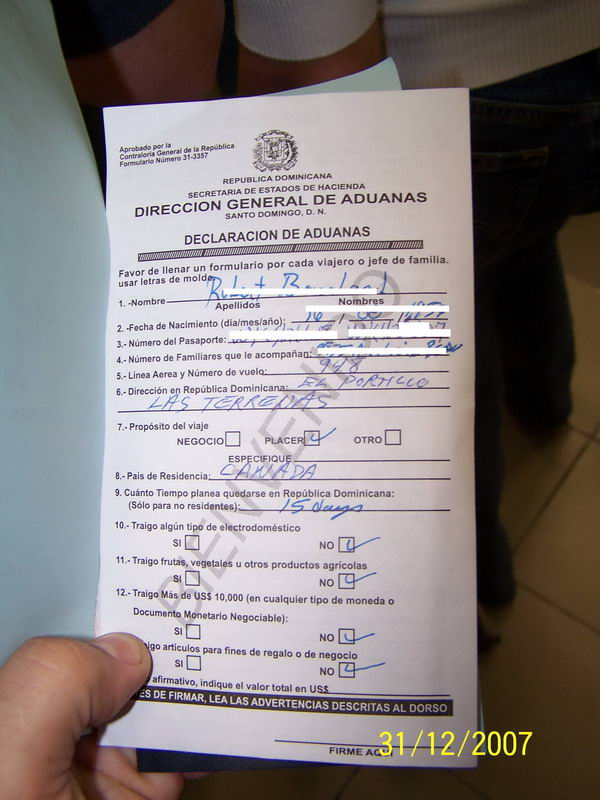 Aprobado por la
Contraloría General de la República
Formulario Número 31-3357
REPUBLICA DOMINICANA
SECRETARIA DE ESTADOS DE HACIENDA
DIRECCION GENERAL DE ADUANAS
SANTO DOMINGO, D. N.
DECLARACION DE ADUANAS
Favor de llenar un formulario por cada viajero o jefe de familia.
usar letras de molde.
1. -Nombre
Apellidos Nombres
2.-Fecha de Nacimiento (dia/mes/año): / /
3.-Número del Pasaporte:
4.-Número de Familiares que le acompañan:
5.-Línea Aerea y Número de vuelo: 948
6.-Dirección en República Dominicana: EL PORTILLO
LAS TERRENAS
7.-Propósito del viaje
NEGOCIO PLACER OTRO
ESPECIFIQUE
8.-Pais de Residencia: CANADA
9. Cuánto Tiempo planea quedarse en República Dominicana:
(Sólo para no residentes): 15 days
10.- Traigo algún tipo de electrodoméstico
SI NO
11.- Traigo frutas, vegetales u otros productos agrícolas
SI NO
12.- Traigo Más de US$ 10,000 (en cualquier tipo de moneda o
Documento Monetario Negociable):
SI NO
articulos para fines de regalo o de negocio
SI NO
afirmativo, indique el valor total en US$
DE FIRMAR, LEA LAS ADVERTENCIAS DESCRITAS AL DORSO
FIRME
BIENVENIDO
31/12/2007